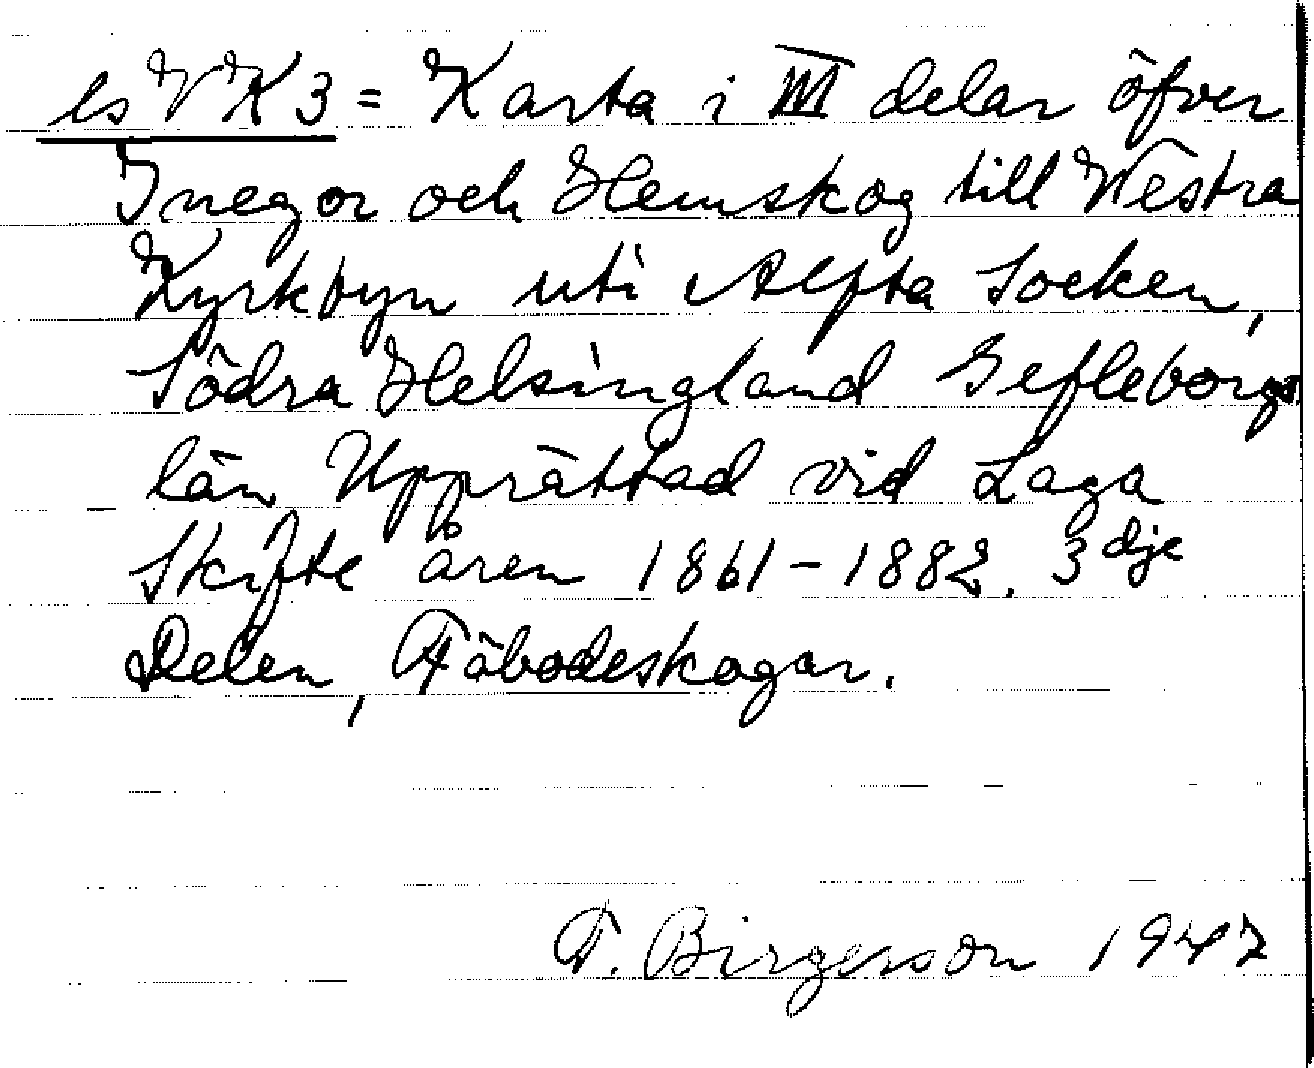 ls VK 3 = Karta i III delar öfver
Inegor och Hemskog till Westra
Kyrkbyn uti Alfta Socken,
Södra Helsingland Gefleborgs
län Upprättad vid Laga
Skifte åren 1861-1882. 3dje
Delen, Fäbodeskogar.
F. Birgerson 1947